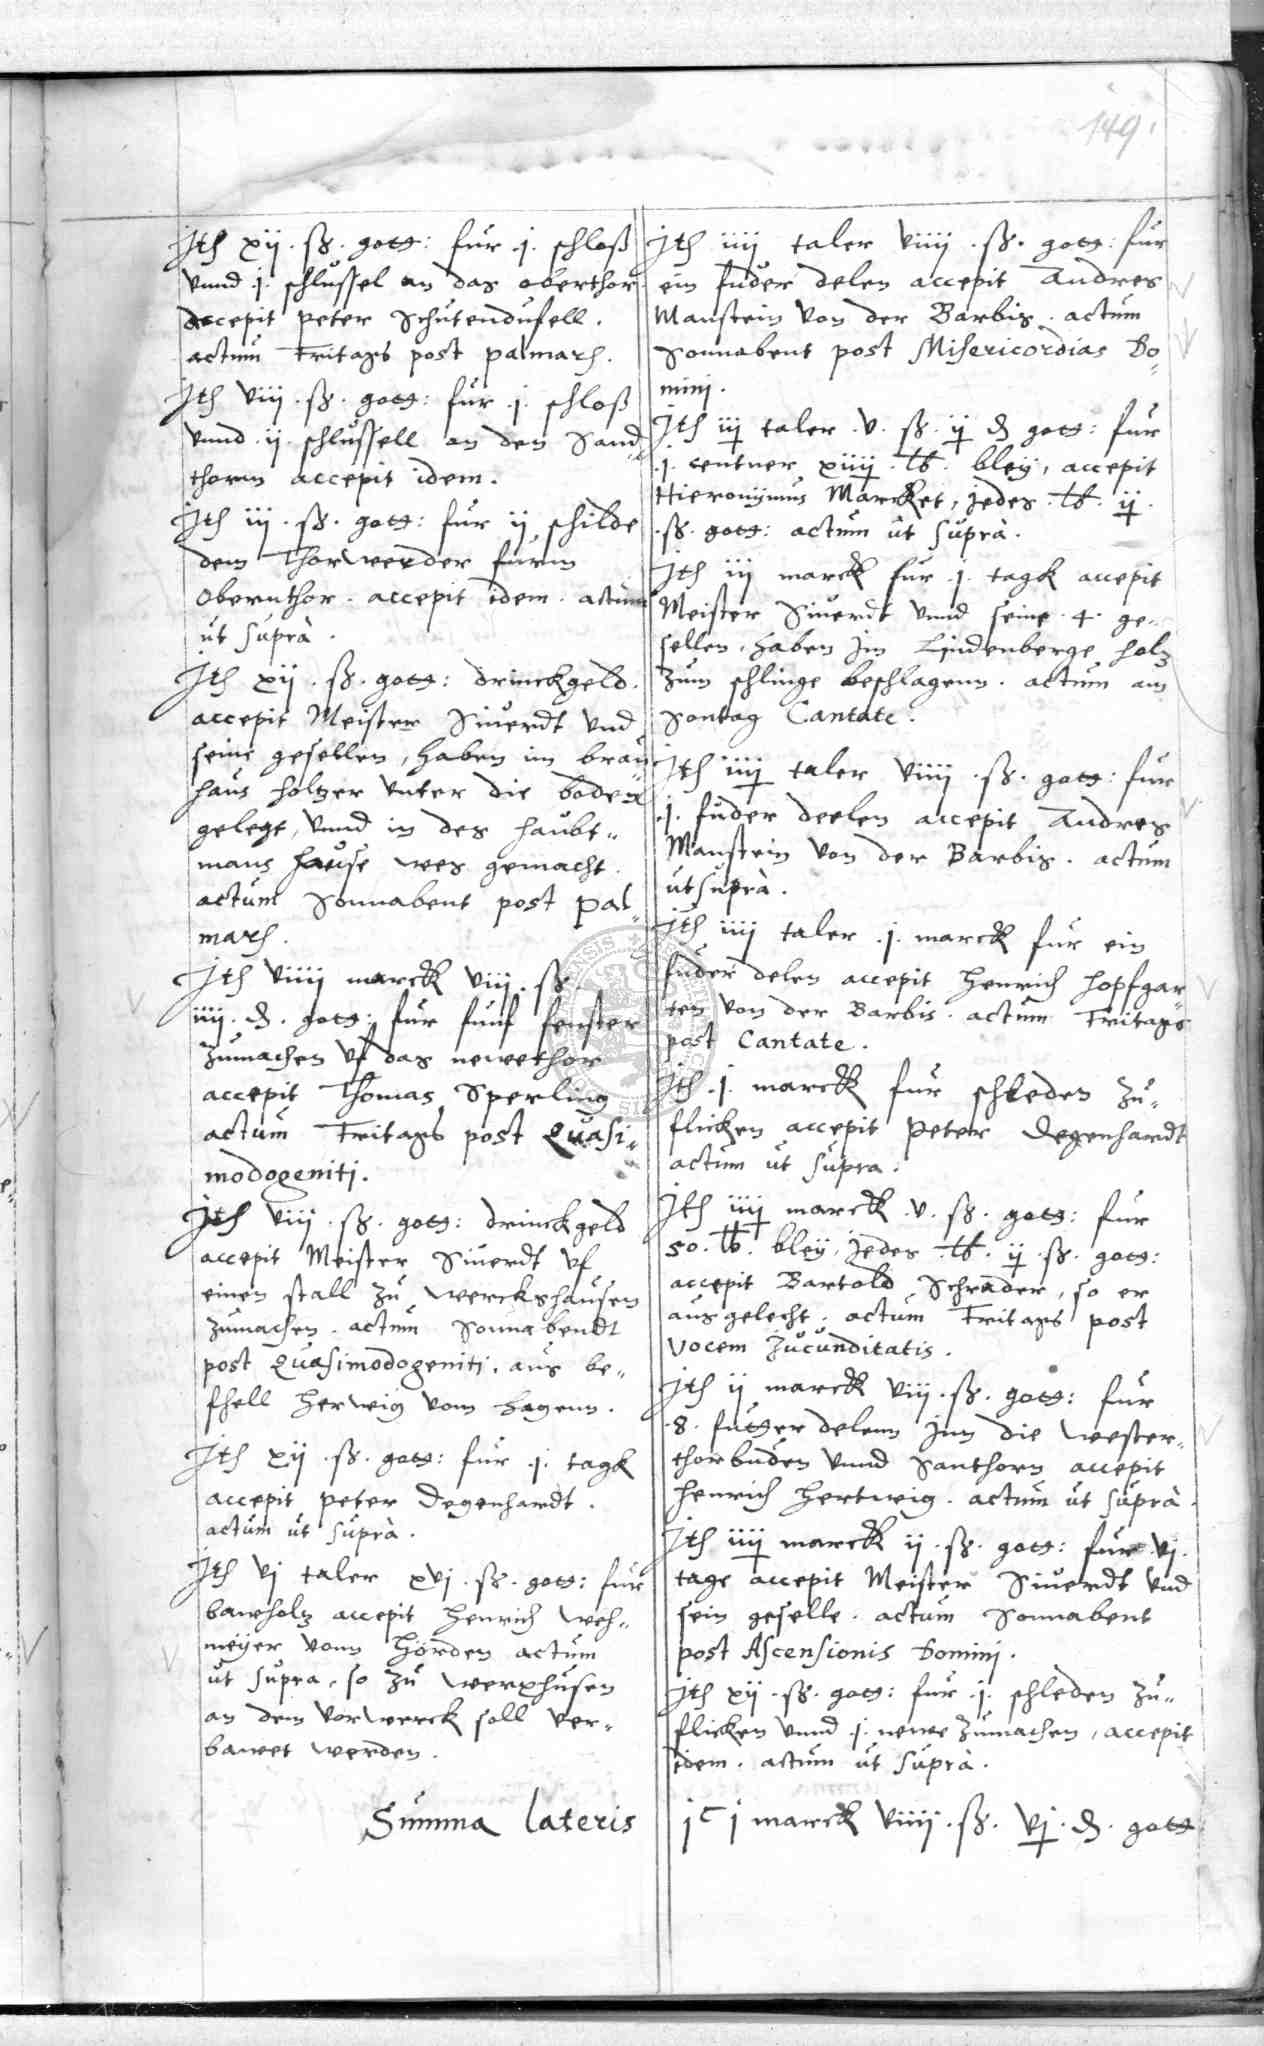 149.
Jtem xij . ß . gottg: fur .j. schloß
vnnd .j. schlussel an das oberthor
accepit Peter Schutendufell.
actum Fritags post palmarum.
Jtem viij . ß . gottg: fur .j. schloß
vnnd .ij. schlussell an den Sand„
thorm accepit idem.
Jtem iij . ß . gottg: fur ij schilde
dem Thorwerder furm
Obernthor . accepit idem . actum
ut suprà .
Jtem xij . ß . gottg: drinckgeld.
accepit Meister Siuerdt vnd
seine gesellen, haben im brau
haus holtzer vnter die boden
gelegt, vnnd in des haubt„
mans hause wes gemacht.
actum Sonnabent post pal„
marum.
Jtem viiij marck viij . ß .
iiij . d . gottg: fur funf fenster
zumachen vf das newethor
accepit Thomas Sperling
actum Fritags post Quasi„
modogeniti.
Jtem viij . ß . gottg: drinckgeld
accepit Meister Siuerdt vf
einen stall zu Werckshausen
zumachen . actum Sonnabendt
post Quasimodogeniti. aus be„
fhell Herwig vom Hagenn.
Jtem xij . ß . gottg: fur .j. tagk
accepit Peter Degenhardt.
actum ut suprà.
Jtem vj taler xvj . ß . gottg: fur
bawholtz accepit Henrich Weh„
meyer vonn Hörden actum
ut supra, so zu Werxhusen
an dem vorwerck soll ver„
bawet werden.
Summa lateris
Jtem iiij taler viiij . ß . gottg: fur
ein fuder delen accepit Andres
Manstein von der Barbis . actum
Sonnabent post Misericordias Do„
mini.
Jtem iij taler .v. ß . ij d gottg: fur
.j. centner xiiij . lb . bley, accepit
Hieronymus Marcket, jedes . lb . ij .
. ß . gottg: actum ut suprà.
Jtem iij marck fur .j. tagk accepit
Meister Siuerdt vnnd seine .4. ge„
sellen, haben im Lindenberge holz
zum schlinge beschlagenn . actum am
Sontag Cantate.
Jtem iiij taler viiij . ß . gottg: fur
.j. fuder deelen accepit Andres
Manstein von der Barbis . actum
ut suprà.
Jtem iiij taler .j. marck fur ein
fuder delen accepit Henrich Hopfgar„
ten von der Barbis . actum Fritags
post Cantate.
Jtem .j. marck fur schleden zu„
flicken accepit Peter Degenhardt
actum ut supra.
Jtem iiij marck .v. ß . gottg: fur
50 . lb . bley, jedes . lb . ij . ß . gottg:
accepit Bartold Schrader, so er
ausgelecht . actum Fritags post
Vocem Jucunditatis.
Jtem ij marck viij . ß . gottg: fur
.8. futger delenn jnn die Wester„
thorbuden vnnd Santhorn accepit
Henrich Hertwig . actum ut suprà.
Jtem iiij marck ij . ß . gottg: fur vj .
tage accepit Meister Siuerdt vnd
sein geselle . actum Sonnabent
post Ascensionis Domini.
Jtem xij . ß . gottg: fur .j. schleden zu„
flicken vnnd .j. newe zumachen, accepit
idem . actum ut suprà.
jc j marck viiij . ß . vj . d . gottg